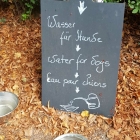 Wasser
für Hunde
water for Dogs
Eau pour Chiens